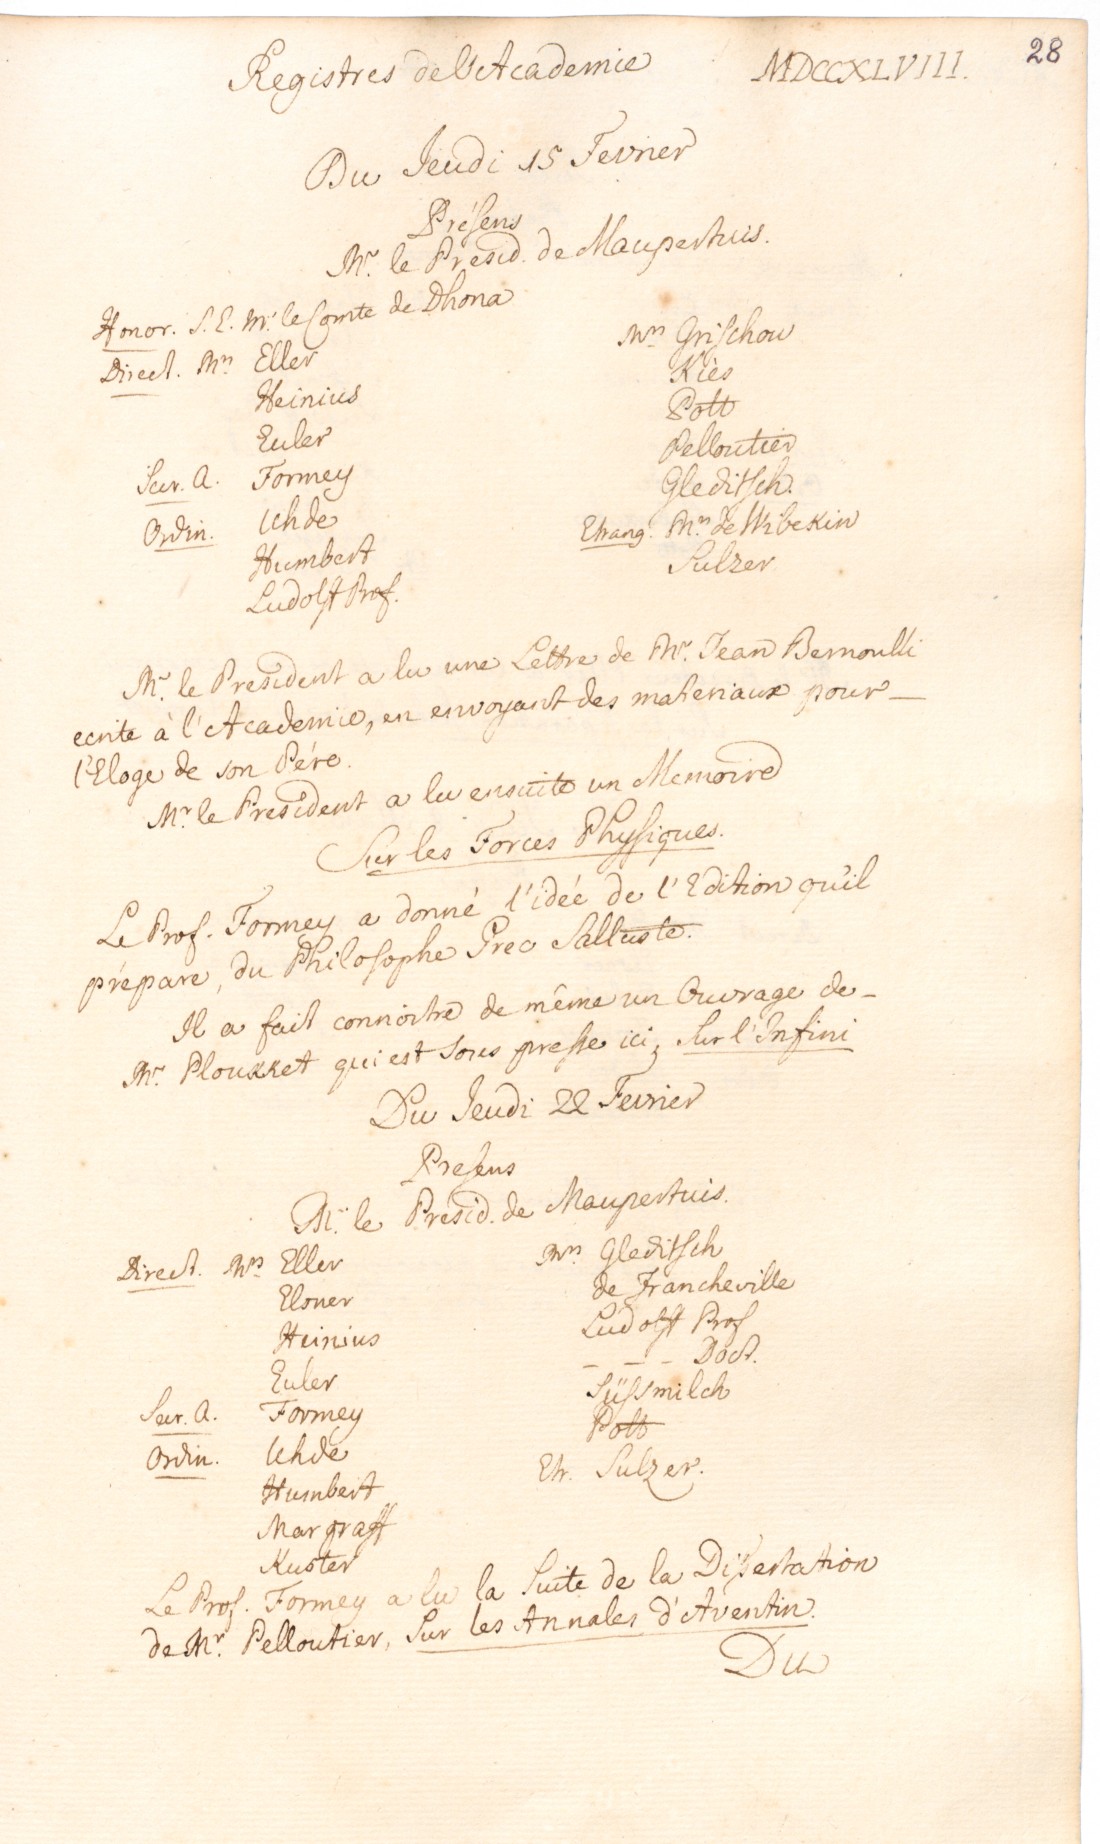 Registres de l'Academie MDCCXLVIII. 28
Du Jeudi 15 Fevrier
Présens
Mr. le Presid. de Maupertuis.
Honor. S. E. Mr. le Comte de Dhona
Direct. Mrs Eller
Heinius
Euler
Secr. A. Formey
Ordin. Uhde
Humbert
Ludolff Prof.
Mrs Grischow
Kies
Pott
Pelloutier
Gleditsch.
Etrang. Mrs de Wibekin
Sulzer
Mr. le President a lu une Lettre de Mr. Jean Bernoulli
ecrite à l'Academie, en envoyant des materiaux pour
l'Eloge de son Pére.
Mr. le President a lu ensuite un Memoire
Sur les Forces Physiques.
Le Prof. Formey a donné l'idée de l'Edition qu'il
prépare, du Philosophe Grec Salluste.
Il a fait connoitre de même un Ouvrage de
Mr. Ploukket qui est sous presse ici, Sur l'Infini
Du Jeudi 22 Fevrier
Presens
Mr. le Presid. de Maupertuis.
Direct. Mrs Eller
Elsner
Heinius
Euler
Secr. A. Formey
Ordin. Uhde
Humbert
Margraff
Kuster
Mrs Gleditsch
de Francheville
Ludolff Prof
- - - Doct.
Süssmilch
Pott
Etr. Sulzer.
Le Prof. Formey a lu la Suite de la Dissertation
de Mr. Pelloutier, Sur les Annales d'Aventin.
Du